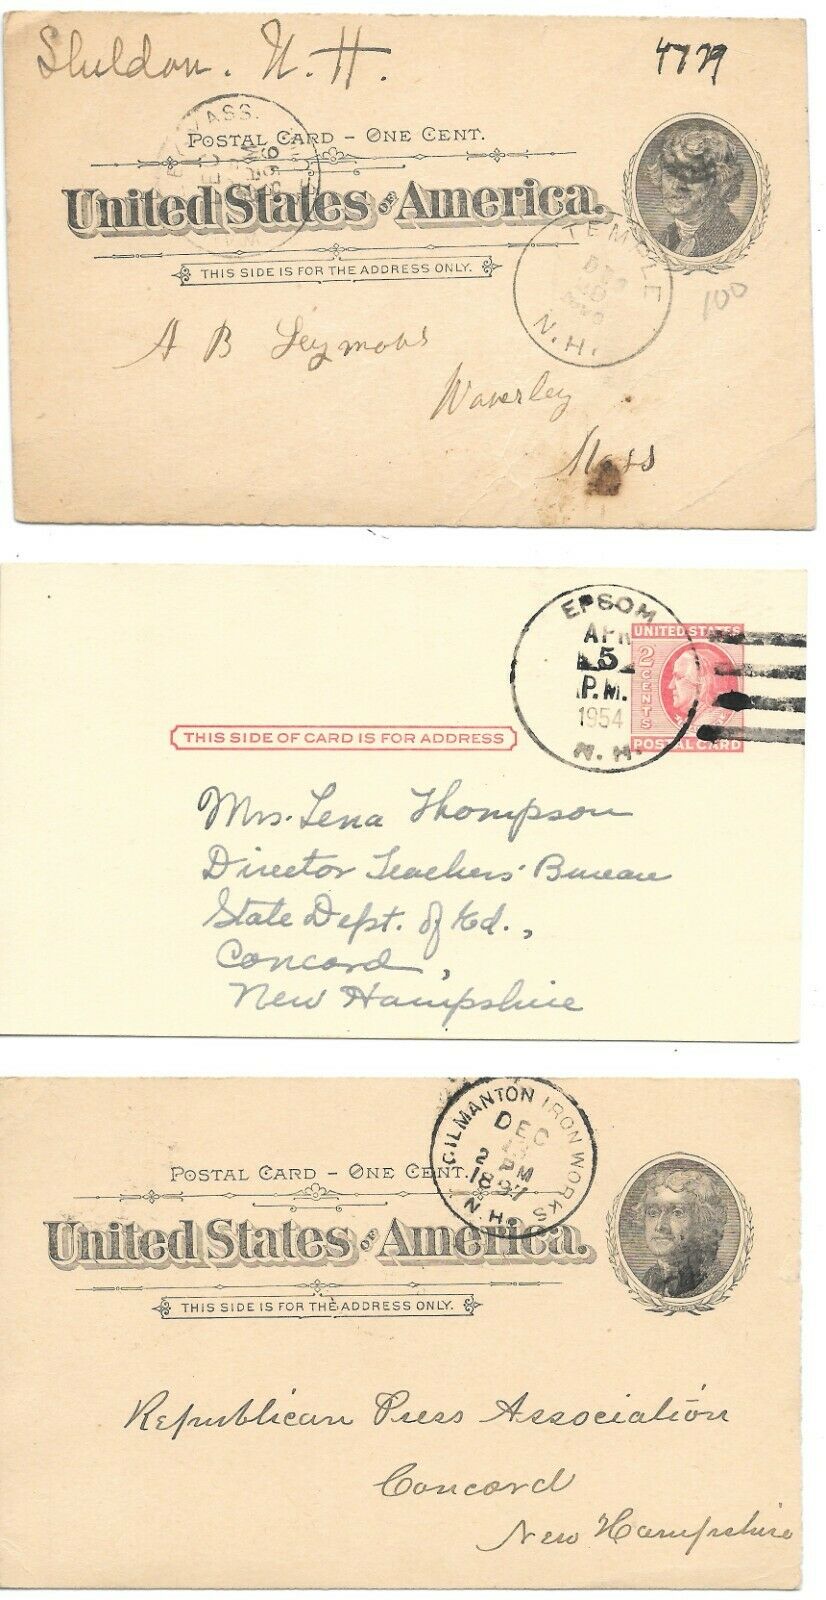 Sheldon. N. H.
4779
MASS.
POSTAL CARD – ONE CENT.
United States of America.
THIS SIDE IS FOR THE ADDRESS ONLY.
TEMPLE
N.H.
100
A B Seymour
Waverley
Mass
EPSOM
APR
5
P.M.
1954
N. H.
UNITED STATES
2 CENTS
POSTAL CARD
THIS SIDE OF CARD IS FOR ADDRESS
Mrs. Lena Thompson
Director Teachers' Bureau
State Dept. of Ed.,
Concord,
New Hampshire
GILMANTON IRON WORKS
DEC
2
PM
1897
N.H.
POSTAL CARD – ONE CENT.
United States of America.
THIS SIDE IS FOR THE ADDRESS ONLY.
Republican Press Association
Concord
New Hampshire